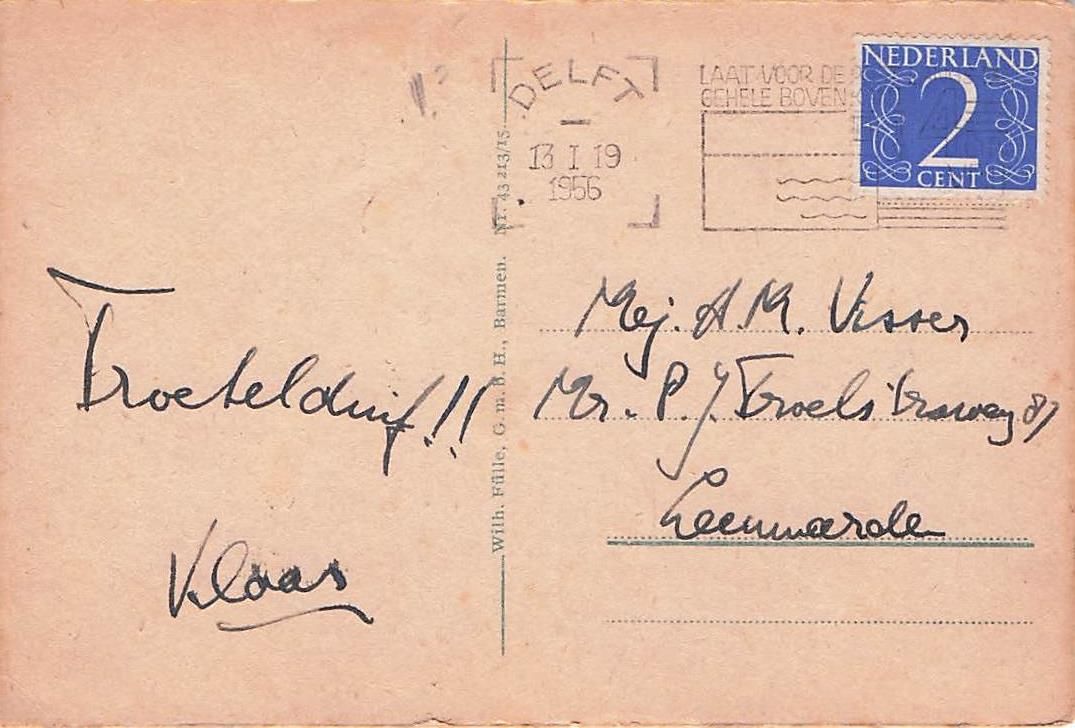 DELFT
13 I 19
1956
LAAT VOOR DE
GEHELE BOVEN
NEDERLAND
2
CENT
Troetelduif!!
Klaas
Wilh. Fülle, G. m. b. H., Barmen. Nr. 43 213/15
Mej. A. M. Visser
Mr. P. J. Troelstraweg 87
Leeuwarden